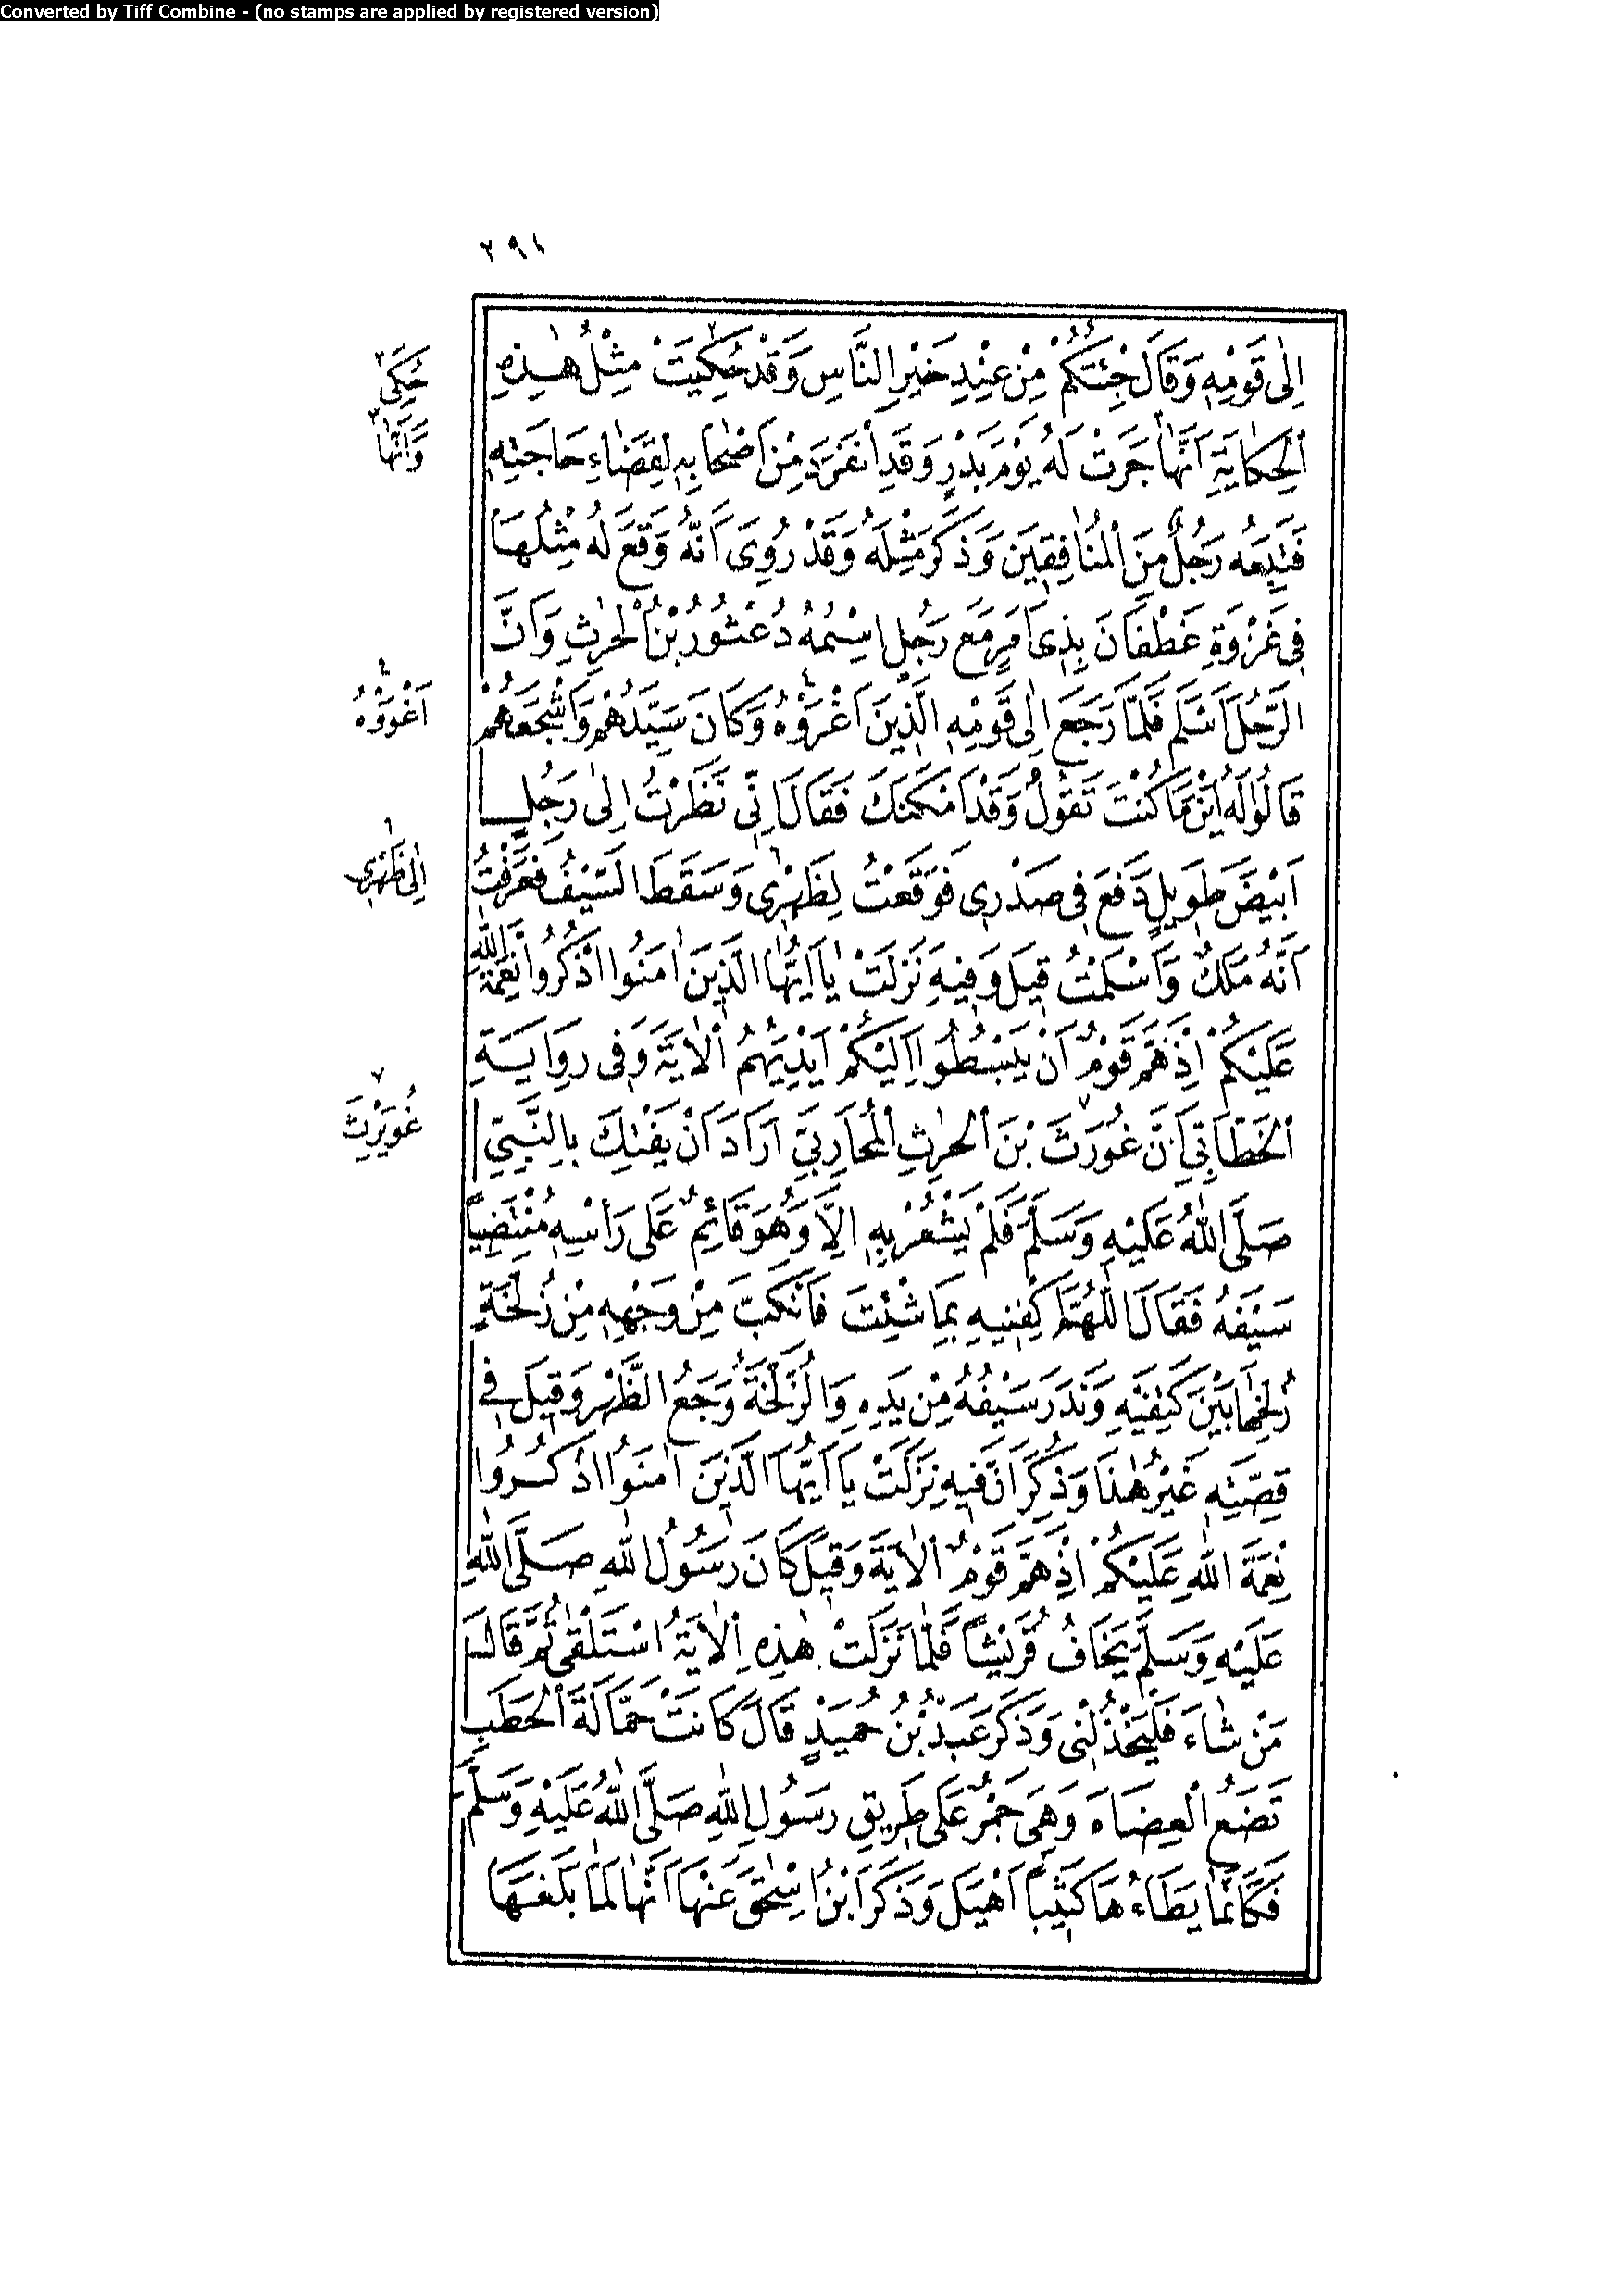 Converted by Tiff Combine - (no stamps are applied by registered version)
٢٩١
اِلٰى قَوْمِهِ وَقَالَ جِئْتُكُمْ مِنْ عِنْدِ خَيْرِ النَّاسِ وَقَدْ حُكِيَتْ مِثْلُ هٰذِهِ
اَلْحِكَايَةِ اَنَّهَا جَرَتْ لَهُ يَوْمَ بَدْرٍ وَقَدِ انْفَرَدَ مِنْ اَصْحَابِهِ لِقَضَاءِ حَاجَتِهِ
فَتَبِعَهُ رَجُلٌ مِنَ الْمُنَافِقِينَ وَذَكَرَ مِثْلَهُ وَقَدْ رُوِىَ اَنَّهُ وَقَعَ لَهُ مِثْلُهَا
فِى غَزْوَةِ غَطْفَانَ بِذِى اَمَرٍ مَعَ رَجُلٍ اسْمُهُ دُعْثُورُ بْنُ الْحٰرِثِ وَاَنَّ
الرَّجُلَ اَسْلَمَ فَلَمَّا رَجَعَ اِلٰى قَوْمِهِ الَّذِينَ اَغْرَوْهُ وَكَانَ سَيِّدَهُمْ وَاَشْجَعَهُمْ
قَالُوا لَهُ اَيْنَ مَا كُنْتَ تَقُولُ وَقَدْ اَمْكَنَكَ فَقَالَ اِنِّى نَظَرْتُ اِلٰى رَجُلٍ
اَبْيَضَ طَوِيلٍ دَفَعَ فِى صَدْرِى فَوَقَعْتُ لِظَهْرِى وَسَقَطَ السَّيْفُ فَعَرَفْتُ
اَنَّهُ مَلَكٌ وَاَسْلَمْتُ قِيلَ وَفِيهِ نَزَلَتْ يَا اَيُّهَا الَّذِينَ اٰمَنُوا اذْكُرُوا نِعْمَةَ اللّٰهِ
عَلَيْكُمْ اِذْ هَمَّ قَوْمٌ اَنْ يَبْسُطُوا اِلَيْكُمْ اَيْدِيَهُمُ الْاٰيَةَ وَفِى رِوَايَةِ
الْخَطَّابِيِّ اَنَّ غَوْرَثَ بْنَ الْحٰرِثِ الْمُحَارِبِيَّ اَرَادَ اَنْ يَفْتِكَ بِالنَّبِيِّ
صَلَّى اللّٰهُ عَلَيْهِ وَسَلَّمَ فَلَمْ يَشْعُرْ بِهِ اِلَّا وَهُوَ قَائِمٌ عَلَى رَأْسِهِ مُنْتَضِياً
سَيْفَهُ فَقَالَ اللّٰهُمَّ اكْفِنِيهِ بِمَا شِئْتَ فَانْكَبَّ مِنْ وَجْهِهِ مِنْ زُلَّخَةٍ
زُلِخَهَا بَيْنَ كَتِفَيْهِ وَنَدَرَ سَيْفُهُ مِنْ يَدِهِ وَالزُّلَّخَةُ وَجَعُ الظَّهْرِ وَقِيلَ فِى
قِصَّتِهِ غَيْرُ هٰذَا وَذُكِرَ اَنَّ فِيهِ نَزَلَتْ يَا اَيُّهَا الَّذِينَ اٰمَنُوا اذْكُرُوا
نِعْمَةَ اللّٰهِ عَلَيْكُمْ اِذْ هَمَّ قَوْمٌ الْاٰيَةَ وَقِيلَ كَانَ رَسُولُ اللّٰهِ صَلَّى اللّٰهُ
عَلَيْهِ وَسَلَّمَ يَخَافُ قُرَيْشاً فَلَمَّا نَزَلَتْ هٰذِهِ الْاٰيَةُ اسْتَلْقٰى ثُمَّ قَالَ
مَنْ شَاءَ فَلْيَخْذُلْنِى وَذَكَرَ عَبْدُ بْنُ حُمَيْدٍ قَالَ كَانَتْ حَمَّالَةُ الْحَطَبِ
تَضَعُ الْعِضَاهَ وَهِىَ جَمْرٌ عَلَى طَرِيقِ رَسُولِ اللّٰهِ صَلَّى اللّٰهُ عَلَيْهِ وَسَلَّمَ
فَكَأَنَّمَا يَطَاءُهَا كَثِيباً اَهْيَلَ وَذَكَرَ ابْنُ اِسْحٰقَ عَنْهَا اَنَّهَا لَمَّا بَلَغَهَا
حُكِىَ
وَاَنَّهَا
اَغْوَوْهُ
اِلٰى ظَهْرِى
غُوَيْرِثَ